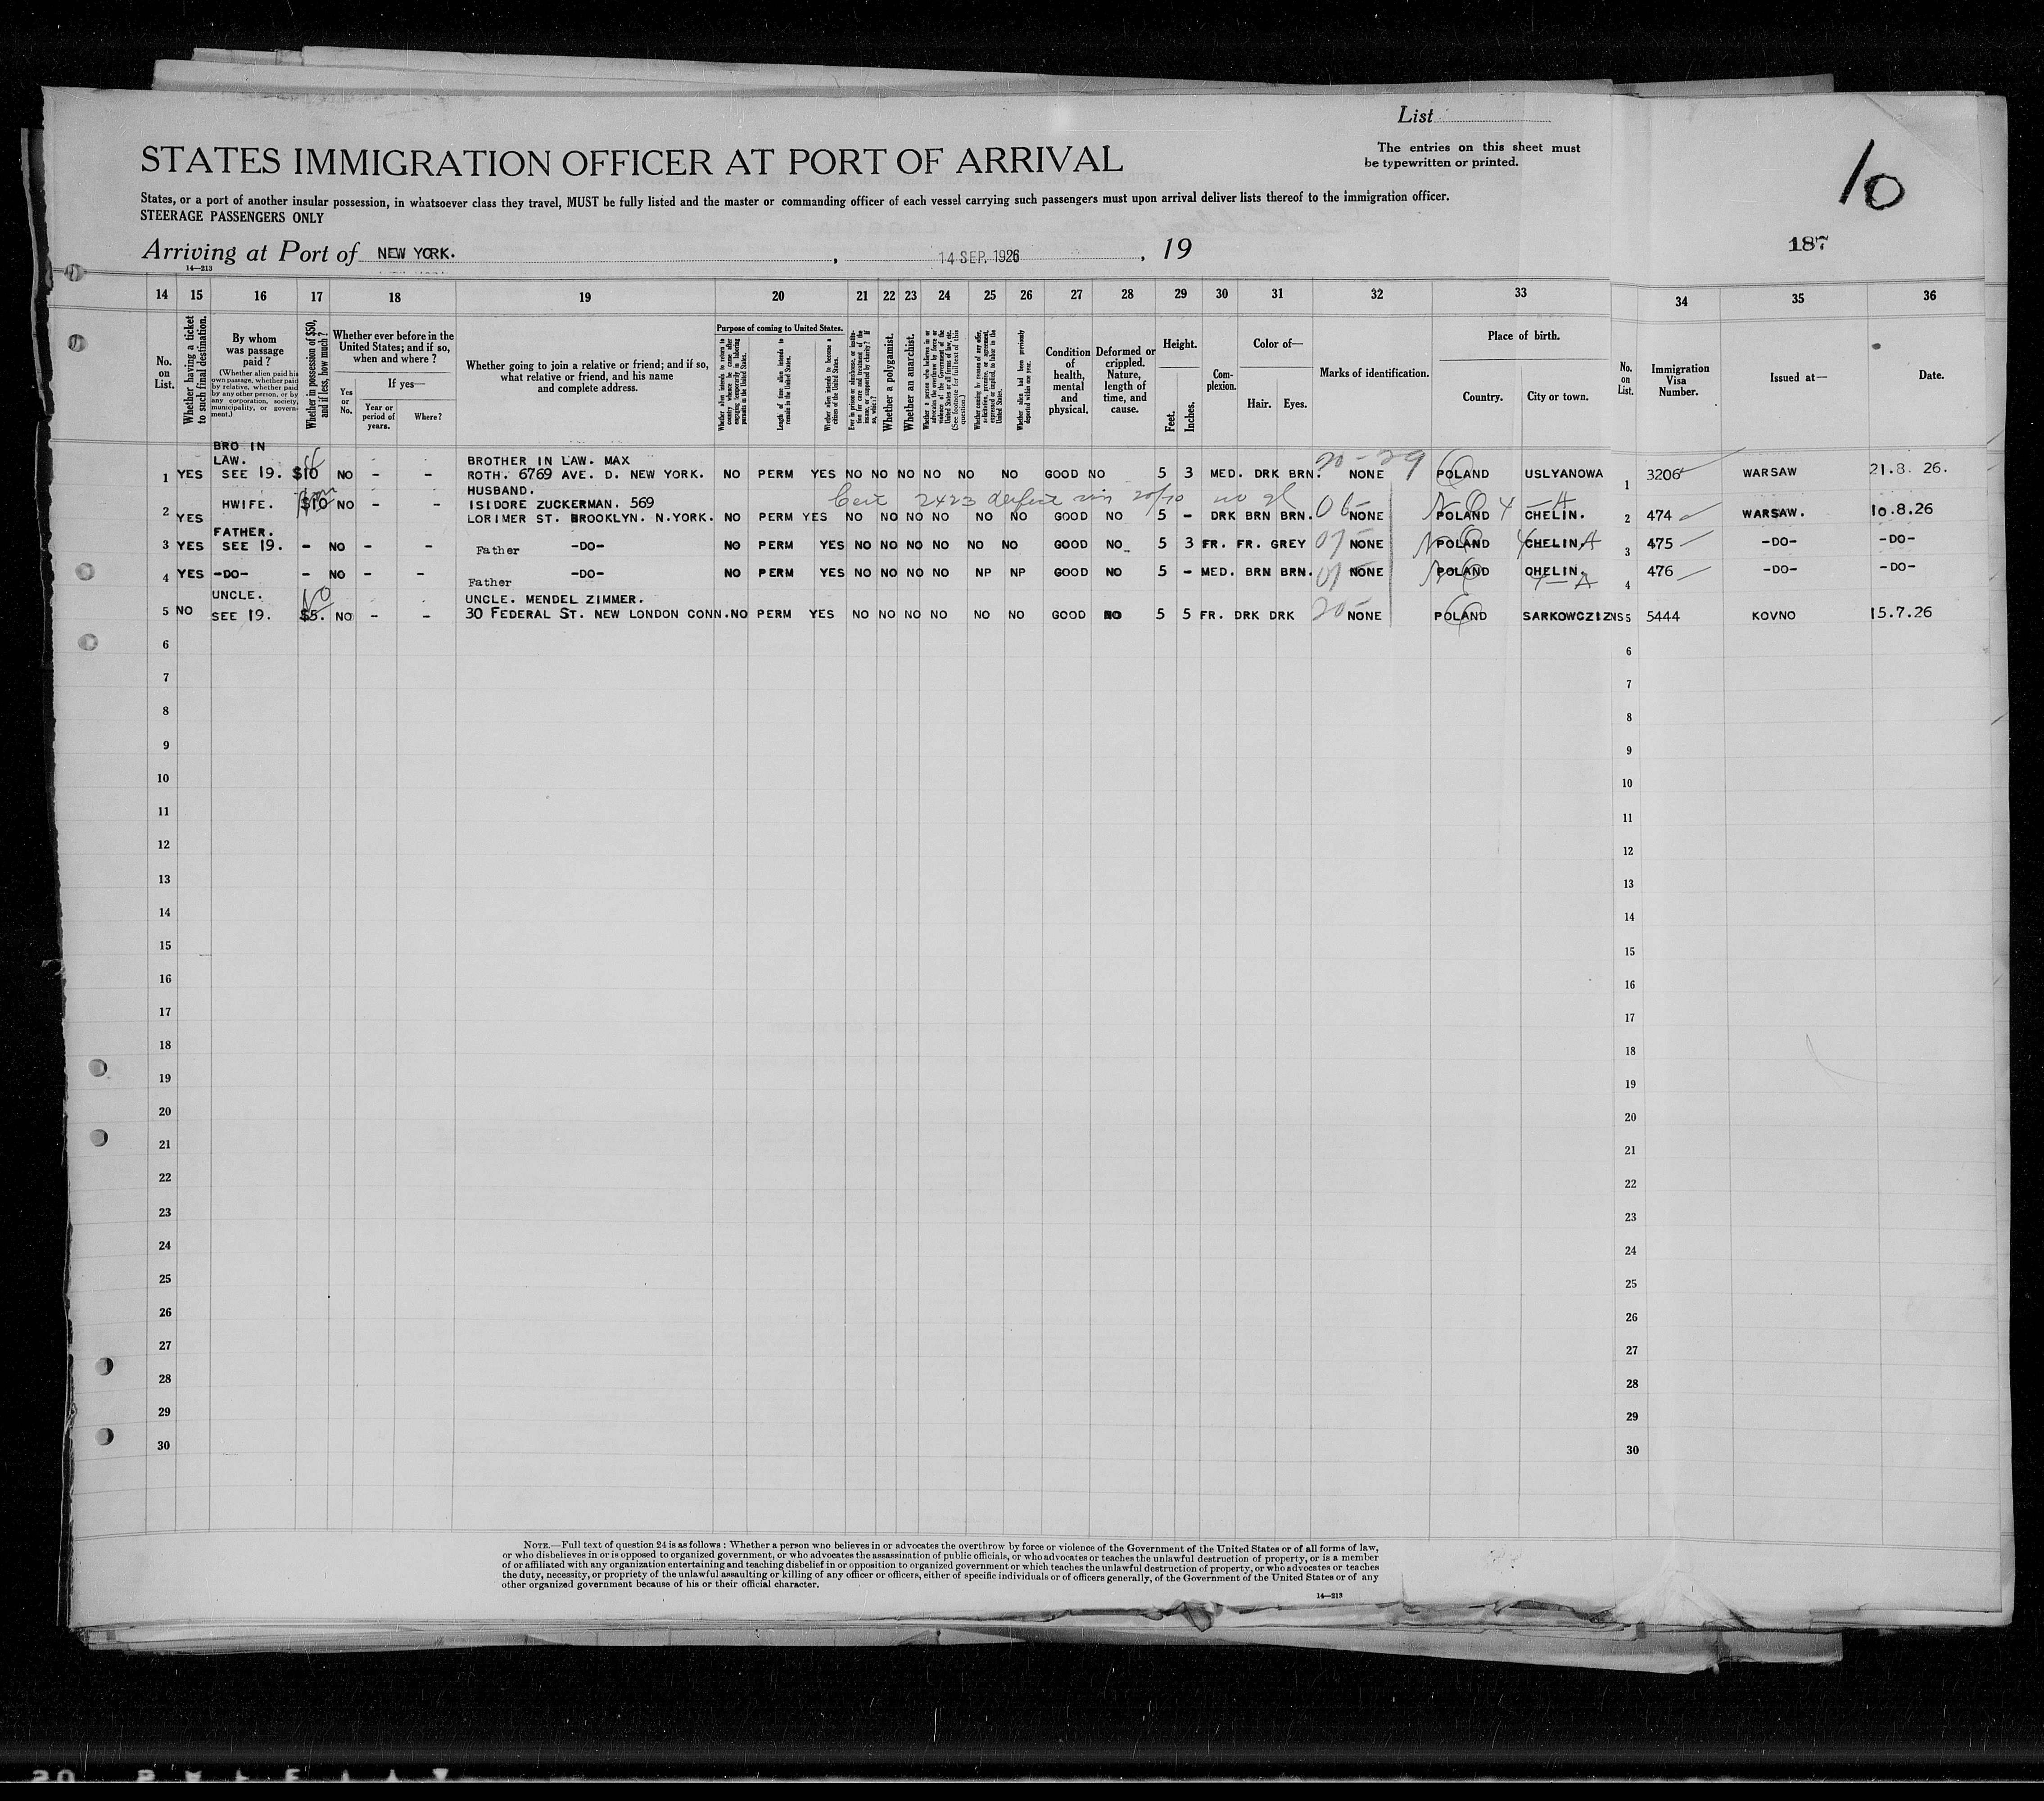 List
STATES IMMIGRATION OFFICER AT PORT OF ARRIVAL
The entries on this sheet must
be typewritten or printed.
10
States, or a port of another insular possession, in whatsoever class they travel, MUST be fully listed and the master or commanding officer of each vessel carrying such passengers must upon arrival deliver lists thereof to the immigration officer.
STEERAGE PASSENGERS ONLY
187
Arriving at Port of NEW YORK. , 14 SEP. 1926 , 19
14—213
14 15 16 17 18 19 20 21 22 23 24 25 26 27 28 29 30 31 32 33 34 35 36
No. on List.
Whether having a ticket to such final destination.
By whom was passage paid?
(Whether alien paid his own passage, whether paid by relative, whether paid by any other person, or by any corporation, society, municipality, or government.)
Whether in possession of $50, and if less, how much?
Whether ever before in the United States; and if so, when and where?
Yes or No.
If yes—
Year or period of years.
Where?
Whether going to join a relative or friend; and if so, what relative or friend, and his name and complete address.
Purpose of coming to United States.
Whether alien intends to return to country whence he came after engaging temporarily in laboring pursuits in the United States.
Length of time alien intends to remain in the United States.
Whether alien intends to become a citizen of the United States.
Whether a polygamist.
Whether an anarchist.
Whether coming by reason of any offer, solicitation, promise, or agreement, expressed or implied, to labor in the United States.
Whether alien had been previously deported within one year.
Condition of health, mental and physical.
Deformed or crippled. Nature, length of time, and cause.
Height.
Feet.
Inches.
Complexion.
Color of—
Hair.
Eyes.
Marks of identification.
Place of birth.
Country.
City or town.
No. on List.
Immigration Visa Number.
Issued at—
Date.
BRO IN
LAW. BROTHER IN LAW. MAX 20-29
1 YES SEE 19. $10 NO - - ROTH. 6769 AVE. D. NEW YORK. NO PERM YES NO NO NO NO NO NO GOOD NO 5 3 MED. DRK BRN. NONE POLAND USLYANOWA 1 3206 WARSAW 21.8. 26.
HUSBAND.
HWIFE. $10 NO - - ISIDORE ZUCKERMAN. 569 Cert 2423 defect vis 20/70
2 YES LORIMER ST. BROOKLYN. N.YORK. NO PERM YES NO NO NO NO NO NO GOOD NO 5 - DRK BRN BRN. 06 NONE POLAND CHELIN. 2 474 WARSAW. 10.8.26
FATHER.
3 YES SEE 19. - NO - - Father -DO- NO PERM YES NO NO NO NO NO NO GOOD NO 5 3 FR. FR. GREY 07 NONE POLAND CHELIN. 3 475 -DO- -DO-
4 YES -DO- - NO - - Father -DO- NO PERM YES NO NO NO NO NP NP GOOD NO 5 - MED. BRN BRN. 07 NONE POLAND CHELIN. 4 476 -DO- -DO-
UNCLE. UNCLE. MENDEL ZIMMER.
5 NO SEE 19. $5. NO - - 30 FEDERAL ST. NEW LONDON CONN. NO PERM YES NO NO NO NO NO NO GOOD NO 5 5 FR. DRK DRK 20 NONE POLAND SARKOWCZIZNS 5 5444 KOVNO 15.7.26
6 6
7 7
8 8
9 9
10 10
11 11
12 12
13 13
14 14
15 15
16 16
17 17
18 18
19 19
20 20
21 21
22 22
23 23
24 24
25 25
26 26
27 27
28 28
29 29
30 30
NOTE.—Full text of question 24 is as follows: Whether a person who believes in or advocates the overthrow by force or violence of the Government of the United States or of all forms of law,
or who disbelieves in or is opposed to organized government, or who advocates the assassination of public officials, or who advocates or teaches the unlawful destruction of property, or is a member
of or affiliated with any organization entertaining and teaching disbelief in or opposition to organized government or which teaches the unlawful destruction of property, or who advocates or teaches
the duty, necessity, or propriety of the unlawful assaulting or killing of any officer or officers, either of specific individuals or of officers generally, of the Government of the United States or of any
other organized government because of his or their official character.
14—213